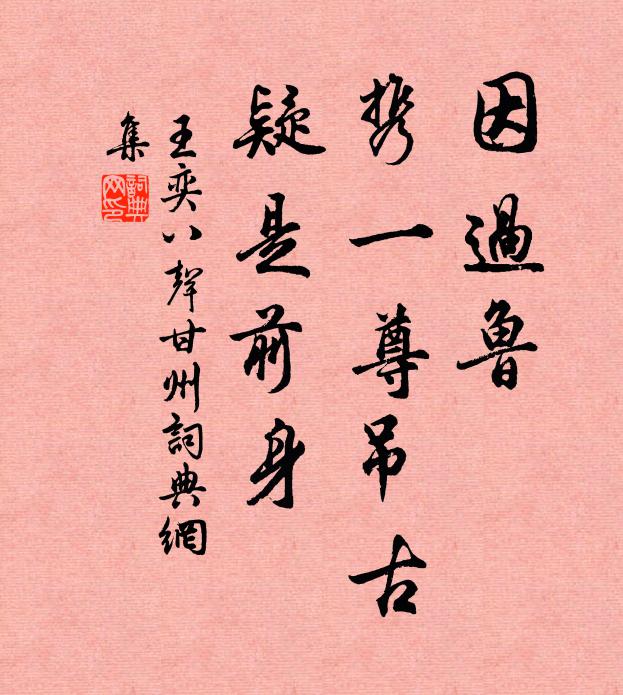 因過魯
携一尊吊古
疑是前身
王奕八聲甘州詞典網
集
詞典
网印